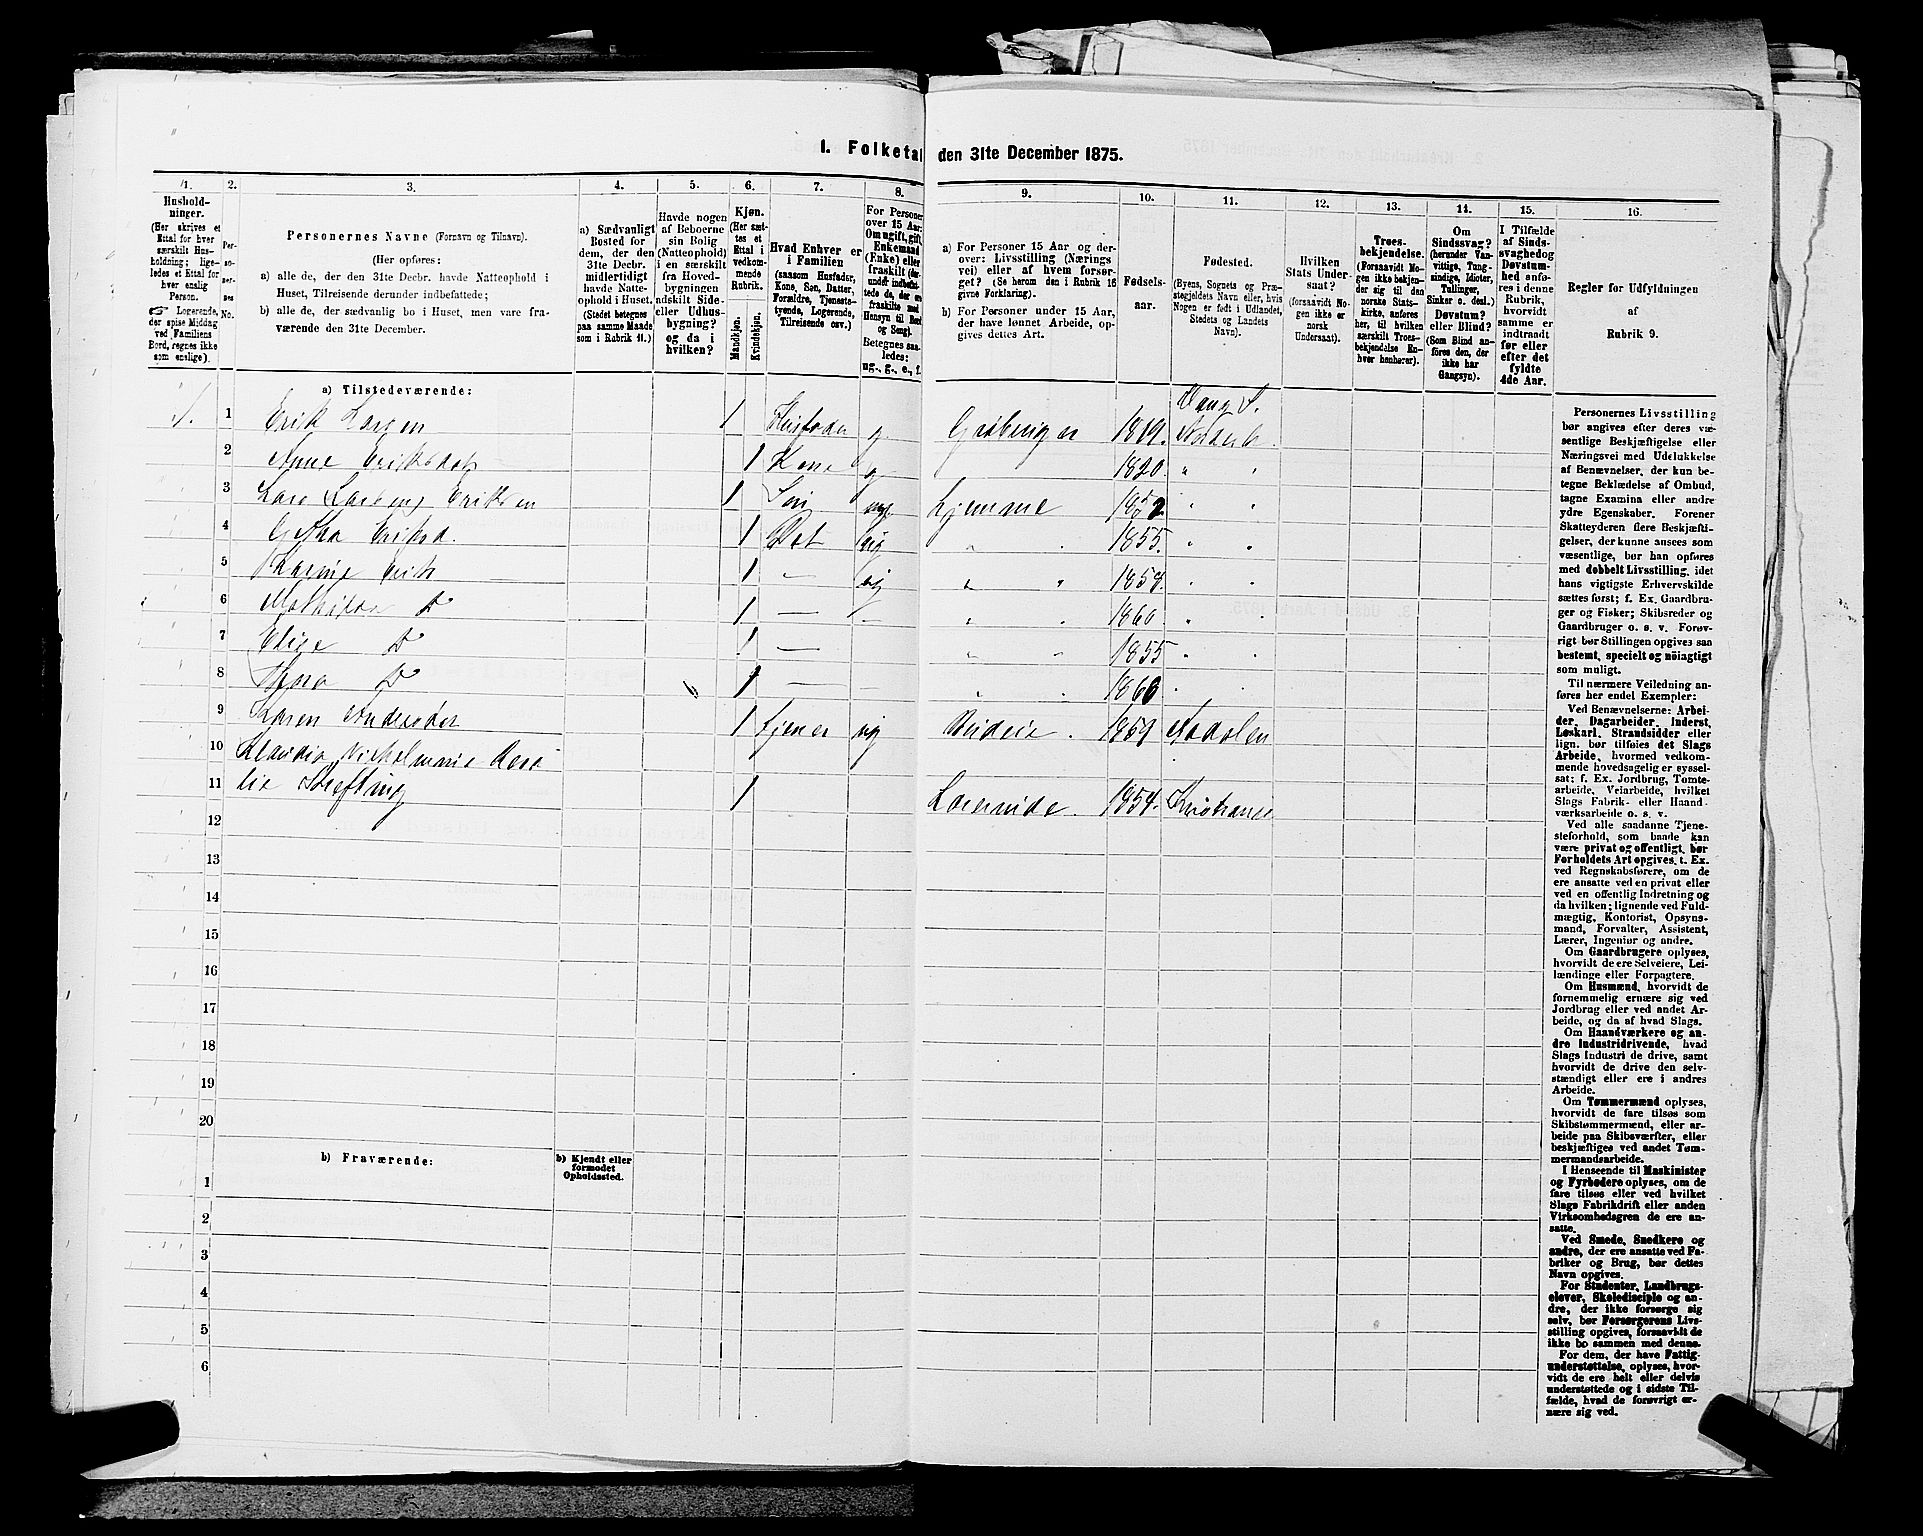 1. Folketal den 31te December 1875.
1. 2. 3. 4. 5. 6. 7. 8. 9. 10. 11. 12. 13. 14. 15. 16.
Hushold-
ninger.
(Her skrives et
Ettal for hver
særskilt Hus-
holdning; lige-
ledes et Ettal for
hver enslig
Person.
Logerende,
der spise Middag
ved Familiens
Bord, regnes ikke
som enslige).
Per-
so-
ner-
nes
No.
Personernes Navne (Fornavn og Tilnavn).
(Her opføres:
a) alle de, der den 31te Decbr. havde Natteophold i
Huset, Tilreisende derunder indbefattede;
b) alle de, der sædvanlig bo i Huset, men vare fra-
værende den 31te December.
a) Sædvanligt
Bosted for
dem, der den
31te Decbr.
midlertidigt
havde Natte-
ophold i Huset.
(Stedet betegnes
paa samme Maade
som i Rubrik 11.)
Havde nogen
af Beboerne
sin Bolig
(Natteophold)
i en særskilt
fra Hoved-
bygningen
adskilt Side-
eller Udhus-
bygning?
og da i
hvilken?
Kjøn.
(Her sæt-
tes et
Ettal i
vedkom-
mende
Rubrik.
Mandkjøn.
Kvindekjøn.
Hvad Enhver er
i Familien
(saasom Husfader,
Kone, Søn, Datter,
Forældre, Tjeneste-
tyende, Logerende,
Tilreisende osv.)
For Personer
over 15 Aar:
Om ugift, gift,
Enkemand
(Enke) eller
fraskilt (der-
under indbefat-
tede de, der ere
fraskilte med
Hensyn til Bord
og Seng).
Betegnes saa-
ledes:
ug., g., e., f.
a) For Personer 15 Aar og der-
over: Livsstilling (Nærings
vei) eller af hvem forsør-
get? (Se herom den i Rubrik 16
givne Forklaring).
b) For Personer under 15 Aar,
der have lønnet Arbeide, op-
gives dettes Art.
Fødsels-
aar.
Fødested.
(Byens, Sognets og Præ-
stegjeldets Navn eller, hvis
Nogen er født i Udlandet,
Stedets og Landets
Navn).
Hvilken
Stats Under-
saat?
(forsaavidt No-
gen ikke er
norsk
Undersaat).
Troes-
bekjendelse.
(Forsaavidt No-
gen ikke bekjen-
der sig til den
norske Stats-
kirke, anføres
her, til hvilken
særskilt Troes-
bekjendelse En-
hver henhører).
Om
Sindssvag?
(herunder Van-
vittige, Tung-
sindige, Idioter,
Tullinger,
Sinker o. desl.)
Døvstum?
eller Blind?
(Som Blind an-
føres den, der
ikke har
Gangsyn).
I Tilfælde
af Sinds-
svaghed og
Døvstum-
hed anfø-
res i denne
Rubrik,
hvorvidt
samme er
indtraadt
før eller
efter det
fyldte
4de Aar.
Regler for Udfyldningen
af
Rubrik 9.
a) Tilstedeværende:
1. 1 Erik Larsen 1 Husfader g. 1819. Vang S.
2 Anne Eriksdat 1 Kone g 1820. " "
3 Lars Eriksen 1 Søn ug. Hjemme 1852 " "
4 Eriksd. 1 Dat ug " " 1855. " "
5 1 — ug " " 1858. " "
6 D 1 — — " " 1860. " "
7 Elise D 1 — " " 1855 " "
8 D 1 — — " " 1866 " "
9 Karen Andersdat 1 Tjener ug Budeie. 1859 Aadalen
10
11 1 Lærerinde. 1854.
12
13
14
15
16
17
18
19
20
b) Fraværende:
b) Kjendt eller
formodet
Opholdssted.
1
2
3
4
5
6
Personernes Livsstilling
bør angives efter deres væ-
sentlige Beskjæftigelse eller
Næringsvei med Udelukkelse
af Benævnelser, der kun be-
tegne Beklædelse af Ombud,
tagne Examina eller andre
ydre Egenskaber. Forener
Skatteyderen flere Beskjæfti-
gelser, der kunne ansees som
væsentlige, bør han opføres
med dobbelt Livsstilling, idet
hans vigtigste Erhvervskilde
sættes først; f. Ex. Gaardbru-
ger og Fisker; Skibsreder og
Gaardbruger o. s. v. Forøv-
rigt bør Stillingen opgives saa
bestemt, specielt og nøiagtigt
som muligt.
Til nærmere Veiledning an-
føres her endel Exempler:
Ved Benævnelserne: Arbei-
der, Dagarbeider, Inderst,
Løskarl, Strandsidder eller
lign. bør tilføies det Slags
Arbeide, hvormed vedkom-
mende hovedsagelig er syssel-
sat; f. Ex. Jordbrug, Tomte-
arbeide, Veiarbeide, hvilket
Slags Fabrik- eller Haand-
værksarbeide o. s. v.
Ved alle saadanne Tjene-
steforhold, som baade kan
være privat og offentligt, bør
Forholdets Art opgives, t. Ex.
ved Regnskabsførere, om de
ere ansatte ved en privat eller
ved en offentlig Indretning og
da hvilken; lignende ved Fuld-
mægtig, Kontorist, Opsyns-
mand, Forvalter, Assistent,
Lærer, Ingeniør og andre.
Om Gaardbrugere oplyses,
hvorvidt de ere Selveiere, Lei-
lændinge eller Forpagtere.
Om Husmænd, hvorvidt de
fornemmelig ernære sig ved
Jordbrug eller ved andet Ar-
beide, og da af hvad Slags.
Om Haandværkere og an-
dre Industridrivende, hvad
Slags Industri de drive, samt
hvorvidt de drive den selv-
stændigt eller ere i andres
Arbeide.
Om Tømmermænd oplyses,
hvorvidt de fare tilsøs som
Skibstømmermænd, eller ar-
beide paa Skibsværfter, eller
beskjæftiges ved andet Tøm-
mermandsarbeide.
I Henseende til Maskinister
og Fyrbødere oplyses, om de
fare tilsøs eller ved hvilket
Slags Fabrikdrift eller anden
Virksomhedsgren de ere an-
satte.
Ved Smede, Snedkere og
andre, der ere ansatte ved Fa-
briker og Brug, bør dettes
Navn opgives.
For Studenter, Landbrugs-
elever, Skoledisciple og an-
dre, der ikke forsørge sig
selv, bør Forsørgerens Livs-
stilling opgives, forsaavidt de
ikke bo sammen med denne.
For dem, der have Fattig-
understøttelse, oplyses, hvor-
vidt de ere helt eller delvis
understøttede og i sidste Til-
fælde, hvad de forøvrigt er-
nære sig ved.